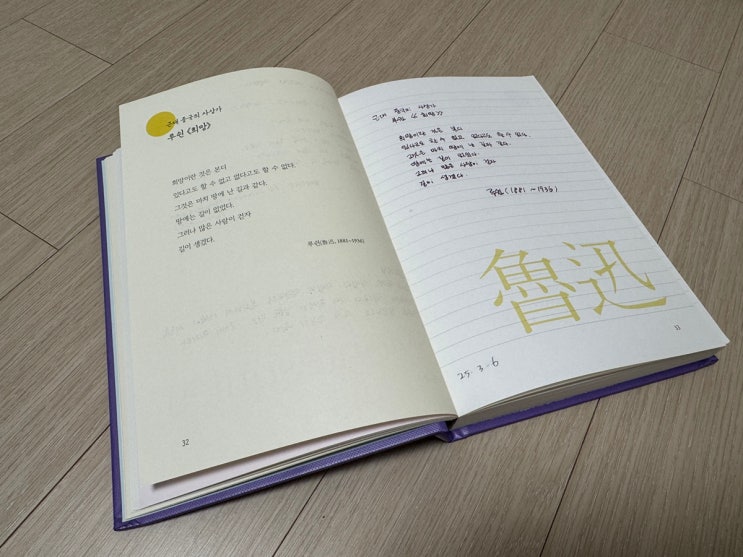 근대 중국의 사상가
루쉰 《희망》
희망이란 것은 본디
있다고도 할 수 없고 없다고도 할 수 없다.
그것은 마치 땅에 난 길과 같다.
땅에는 길이 없었다.
그러나 많은 사람이 걷자
길이 생겼다.
루쉰(魯迅, 1881~1936)
32
근대 중국의 사상가
루쉰 《희망》
희망이란 것은 본디
있다고도 할 수 없고 없다고도 할 수 없다.
그것은 마치 땅에 난 길과 같다.
땅에는 길이 없었다.
그러나 많은 사람이 걷자
길이 생겼다.
루쉰 (1881 ~ 1936)
魯迅
33
25. 3. 6